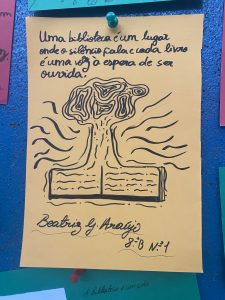 Uma biblioteca é um lugar
onde o silêncio fala e cada livro
é uma voz à espera de ser
ouvida.
Beatriz G Araújo
8ºB Nº1
A biblioteca é